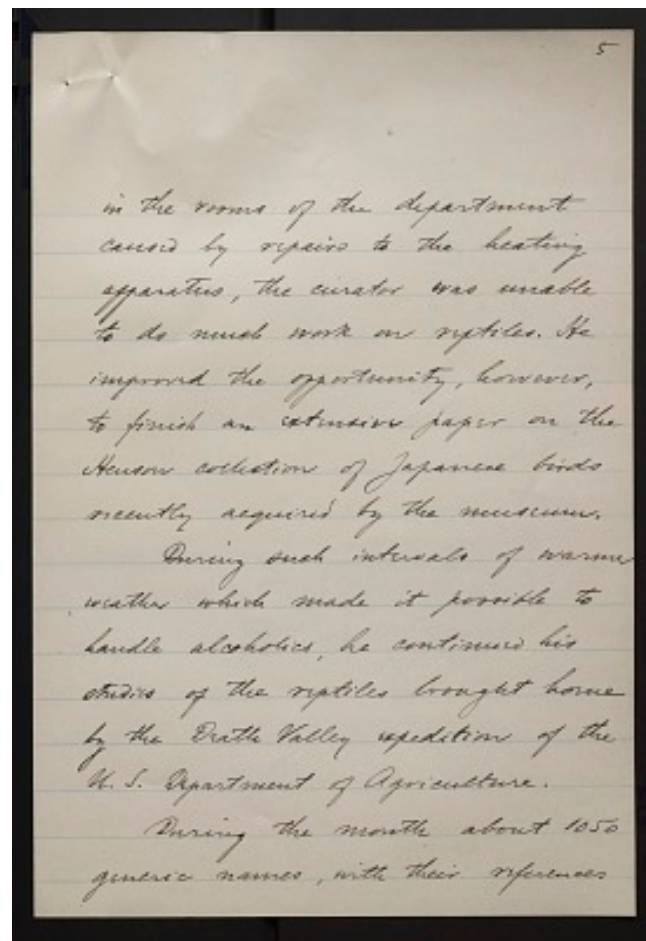 5
in the rooms of the department
caused by repairs to the heating
apparatus, the curator was unable
to do much work on reptiles. He
improved the opportunity, however,
to finish an extensive paper on the
Henson collection of Japanese birds
recently acquired by the museum.
During such intervals of warmer
weather which made it possible to
handle alcoholics, he continued his
studies of the reptiles brought home
by the Death Valley expedition of the
U. S. Department of Agriculture.
During the month about 1050
generic names, with their references